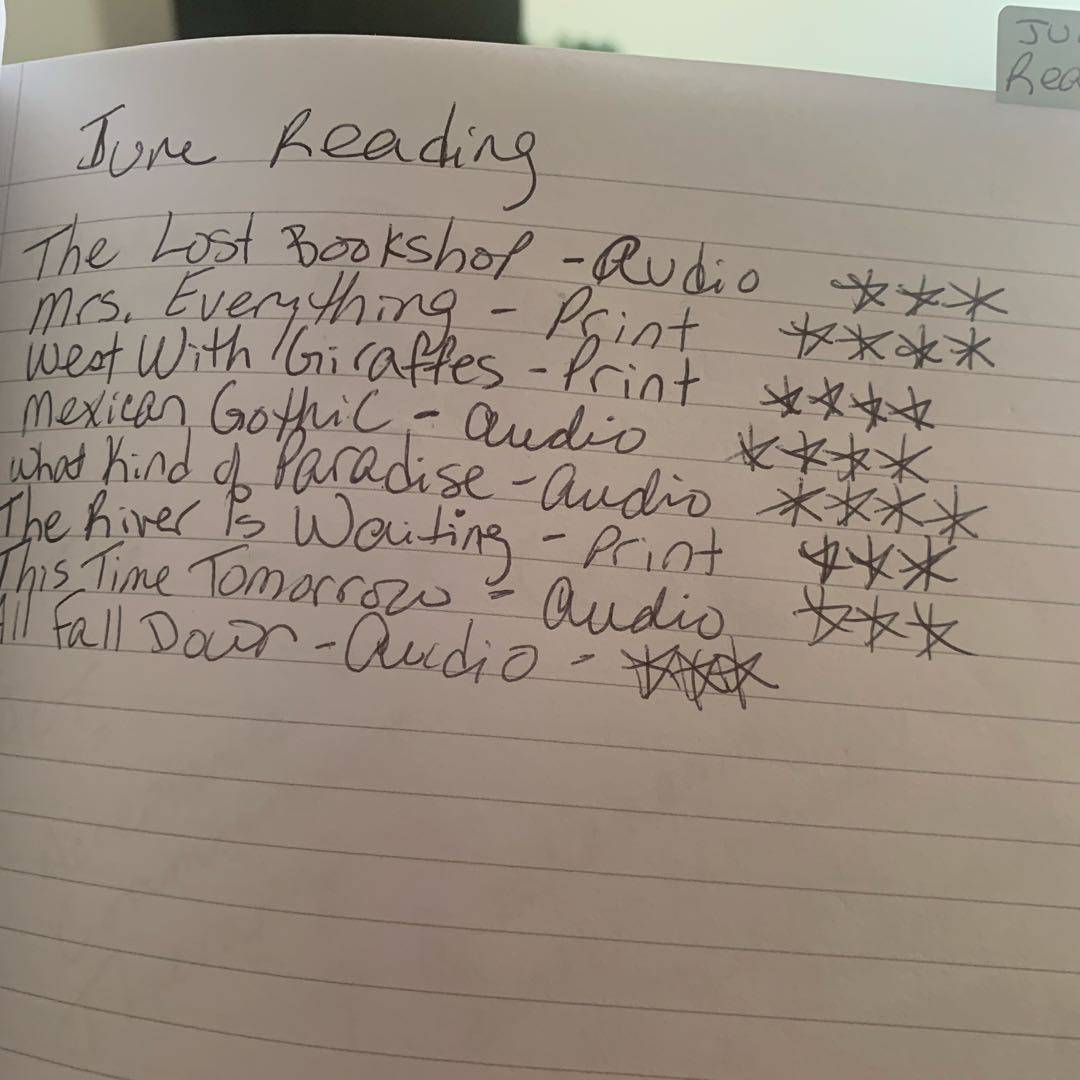 JU
Rea
June Reading
The Lost Bookshop - Audio ***
Mrs. Everything - Print ****
West With Giraffes - Print ****
Mexican Gothic - audio ****
What Kind of Paradise - audio ****
The River Is Waiting - Print ***
This Time Tomorrow - audio ***
All Fall Down - Audio - ***